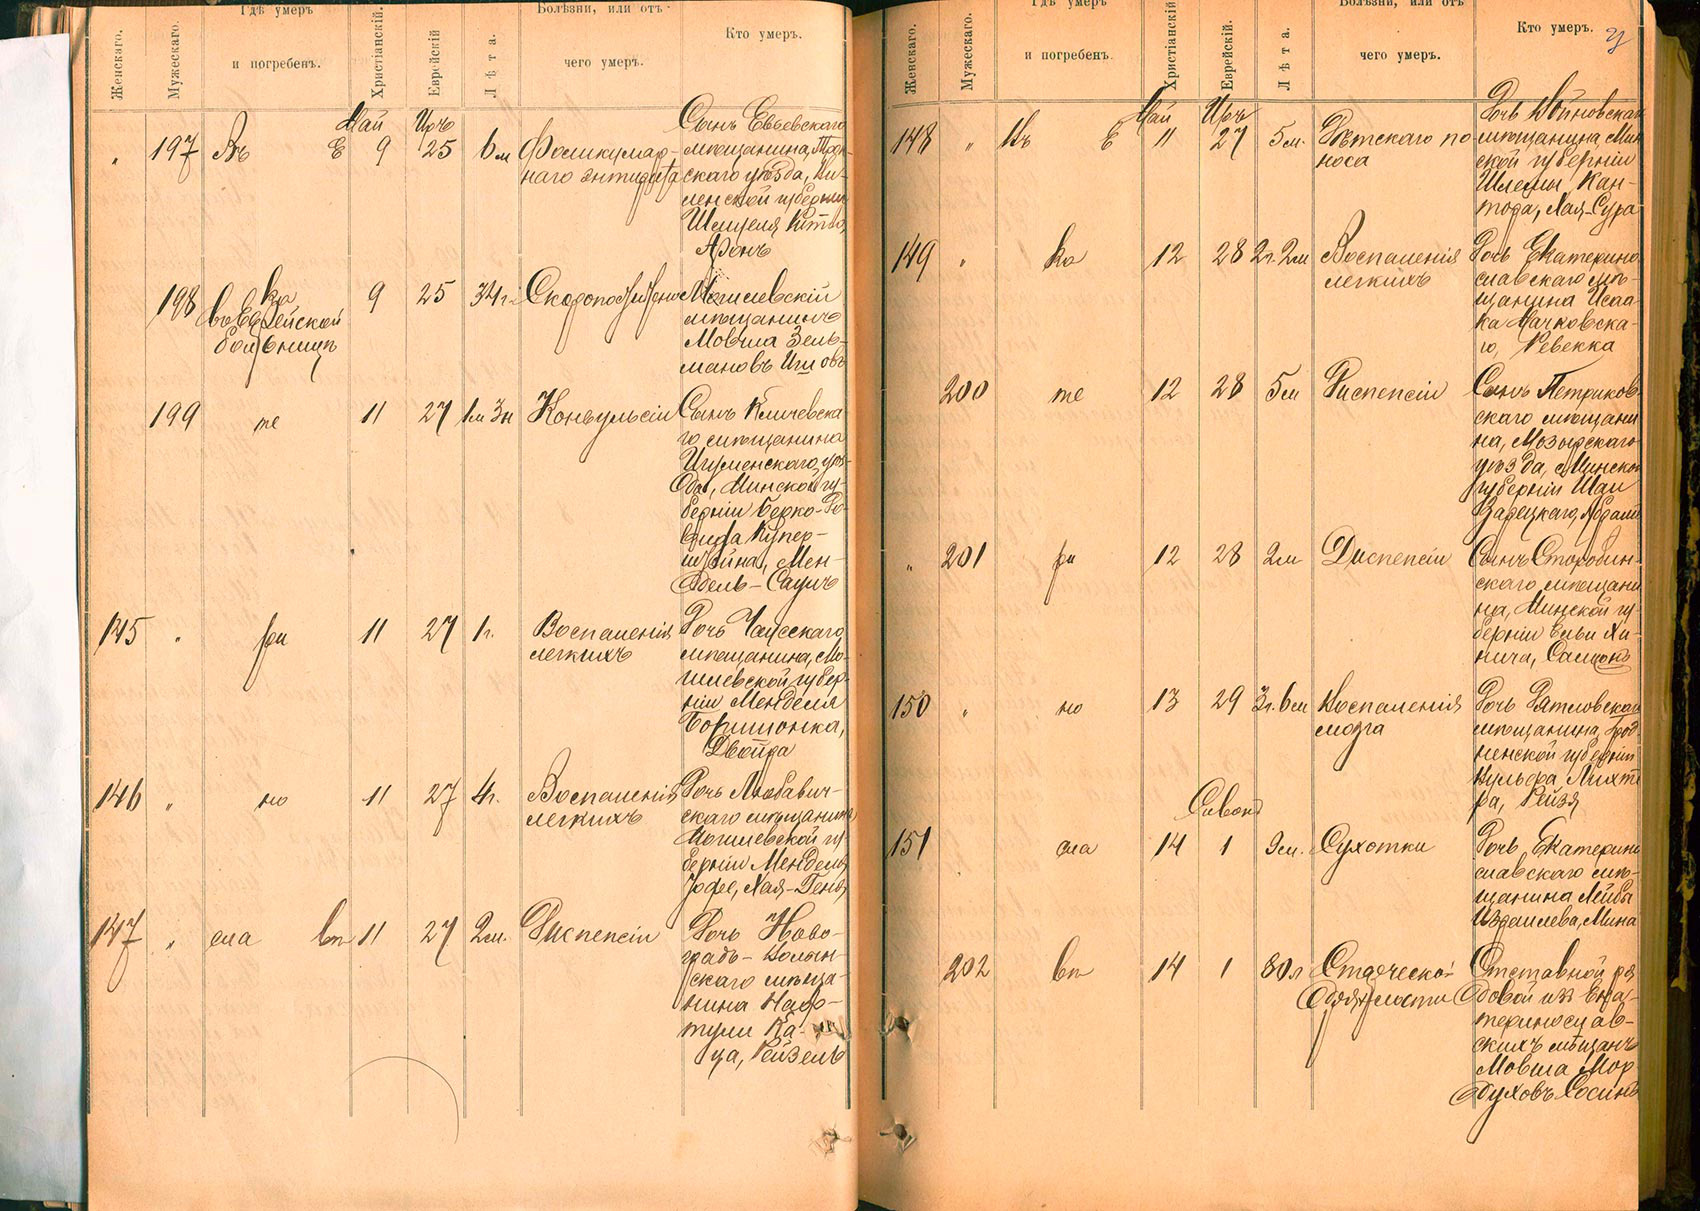 Женскаго.
Мужескаго.
Гдѣ умеръ
и погребенъ.
Христіанскій.
Еврейскій
Лѣта.
Болѣзни, или отъ
чего умеръ.
Кто умеръ.
Май Иръ
„ 197 Въ Е 9 25 6 м
Сынъ Евьевскаго
мѣщанина, Трок-
скаго уѣзда, Ви-
ленской губерніи
Аронъ
198 ка 9 25 34 г.
въ Еврейской
больницѣ
Скоропостижно
Могилевскій
мѣщанинъ
Мовша Зель-
мановъ
199 те 11 27 1м 3н Конвульсіи
Сынъ Кличевска
го мѣщанина
Игуменскаго уѣз-
да, Минской гу-
берніи Берко-До-
вида Купер-
штейна, Мен-
дель-Саулъ
145 „ ри 11 27 1 г.
Воспаленія
легкихъ
Дочь Чаусскаго
мѣщанина, Мо-
гилевской губер-
ніи Менделя
Двойра
146 „ но 11 27 4 г.
Воспаленія
легкихъ
Дочь Любавич-
скаго мѣщанина
Могилевской гу-
берніи Менделя
Іофе, Хая-Геня
147 „ сла вп 11 27 2 м. Диспепсіи
Дочь Ново-
градъ-Волын-
скаго мѣща-
нина Наф-
тули Ка-
ца, Рейзель
Женскаго.
Мужескаго.
Гдѣ умеръ
и погребенъ.
Христіанскій
Еврейскій.
Лѣта.
Болѣзни, или отъ
чего умеръ.
Кто умеръ.
Май Иръ
148 „ Въ Е 11 27 5 м.
Дѣтскаго по
носа
Дочь Койдновскаго
мѣщанина, Мин
ской губерніи
Шлемы Кан-
тора, Хая-Сура
149 „ ка 12 28 2 г. 2 м
Воспаленія
легкихъ
Дочь Екатерино
славскаго мѣ-
щанина Исаа-
ка Мачковска-
го, Ревекка
200 те 12 28 5 м Диспепсіи
Сынъ Петриков-
скаго мѣщани
на, Мозырскаго
уѣзда, Минской
губерніи
Зарецкаго,
„ 201 ри 12 28 2 м Диспепсіи
Сынъ Старобин-
скаго мѣщани
на, Минской гу-
берніи Ельи Хи-
нича, Самсонъ
150 „ но 13 29 3 г. 6 м
Воспаленія
мозга
Дочь Дятловскаго
мѣщанина, Грод-
ненской губерніи
Вульфа Лихте
ра, Рейзя
Сивонъ
151 сла 14 1 9 м. Сухотки
Дочь Екатерино
славскаго мѣ-
щанина Лейбы
Израилева, Мина
202 вп 14 1 80 л
Старческой
дряхлости
Отставной ря
довой изъ Ека-
теринослав-
скихъ мѣщанъ
Мовша Мор-
духовъ Сосинъ